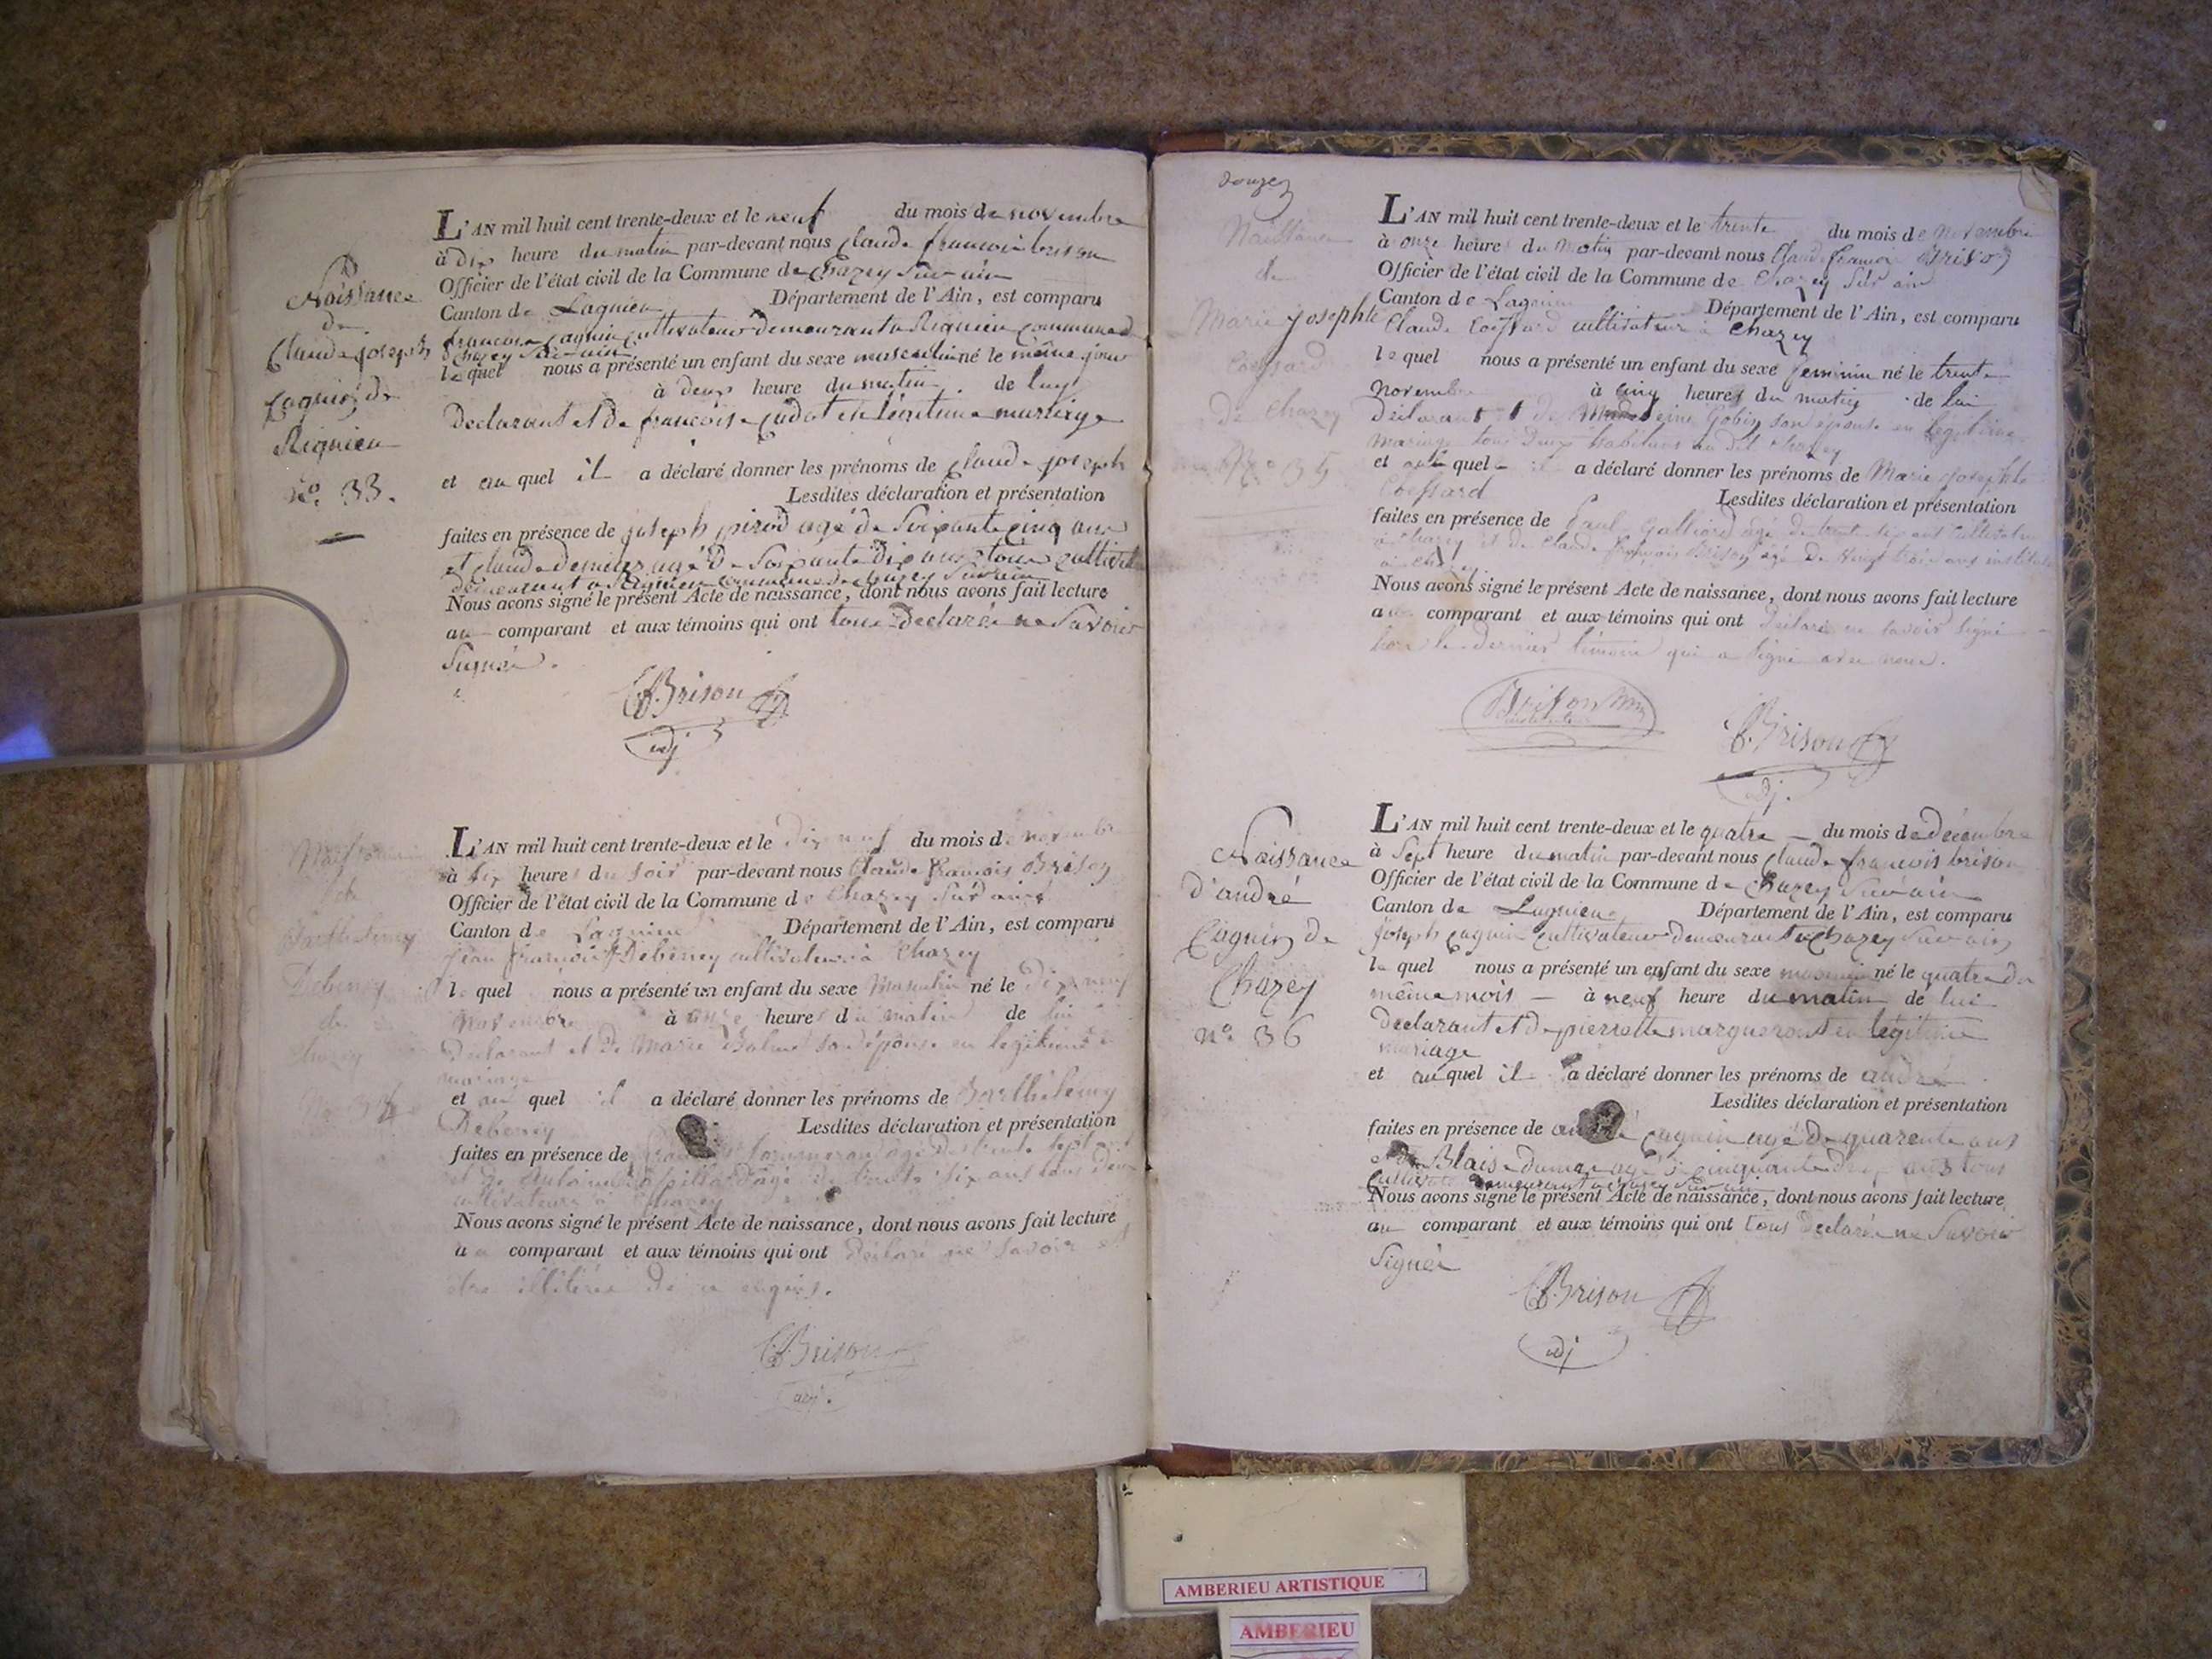 Naissance
de
Claude joseph
Cagnin de
Rignieu
n.o 33.
L'AN mil huit cent trente-deux et le neuf du mois de novembre
à dix heure du matin par-devant nous Claude francois brison
Officier de l'état civil de la Commune de Chazey Sur ain
Canton de Lagnieu Département de l'Ain, est comparu
francois Cagnin Cultivateur demeurant a Rignieu commune de
Chazey Sur ain
lequel nous a présenté un enfant du sexe masculin né le même jour
à deux heure du matin de luy
Declarant et de francoise en légitime mariage
et au quel il a déclaré donner les prénoms de Claude joseph
Lesdites déclaration et présentation
faites en présence de joseph pirod agé de Soixante cinq ans
et Claude agé de Soixante dix ans tous
demeurant a Rignieu Commune de Chazey Sur ain
Nous avons signé le présent Acte de naissance, dont nous avons fait lecture
au comparant et aux témoins qui ont tous Declaré ne Savoir
Signé.
CBrison
adj
Naissance
de
Barthelemy
Debeney
de
chazey
34
L'AN mil huit cent trente-deux et le Dix neuf du mois de novembre
à six heures du soir par-devant nous Claude françois Brison
Officier de l'état civil de la Commune de Chazey Sur ain
Canton de Lagnieu Département de l'Ain, est comparu
jean françois Debeney cultivateur à Chazey
lequel nous a présenté un enfant du sexe Masculin né le Dix neuf
novembre à onze heures du matin de lui
Déclarant et de Marie son épouse en legitime
mariage
et au quel il a déclaré donner les prénoms de Barthelemy
Debeney Lesdites déclaration et présentation
faites en présence de agé de trente sept ans
et de Antoine agé de trente six ans tous deux
cultivateurs à Chazey
Nous avons signé le présent Acte de naissance, dont nous avons fait lecture
au comparant et aux témoins qui ont Déclaré ne savoir
de ce enquis.
CBrison
adj.
Douze
Naissance
de
Marie josephte
Coessard
De Chazey
N.o 35
L'AN mil huit cent trente-deux et le trente du mois de Novembre
à onze heures du matin par-devant nous Claude françois Brison
Officier de l'état civil de la Commune de Chazey Sur ain
Canton de Lagnieu Département de l'Ain, est comparu
Claude Coessard cultivateur à Chazey
lequel nous a présenté un enfant du sexe feminin né le trente
Novembre à cinq heures du matin de lui
Déclarant et de Gobin son épouse en legitime
mariage tous Deux habitans au dit Chazey
et quel il a déclaré donner les prénoms de Marie josephte
Coessard Lesdites déclaration et présentation
faites en présence de Paul Galliard agé de ans cultivateur
à Chazey et de Claude françois Brison agé De Vingt trois ans instituteur
à Chazey
Nous avons signé le présent Acte de naissance, dont nous avons fait lecture
au comparant et aux témoins qui ont Déclaré ne savoir signé
hors le dernier témoin qui a signé avec nous.
Brison
instituteur
CBrison
adj.
Naissance
d'andré
Cagnin de
Chazey
n.o 36
L'AN mil huit cent trente-deux et le quatre du mois de Décembre
à Sept heure du matin par-devant nous Claude francois brison
Officier de l'état civil de la Commune de Chazey Sur ain
Canton de Lagnieu Département de l'Ain, est comparu
joseph Cagnin Cultivateur demeurant a Chazey Sur ain
lequel nous a présenté un enfant du sexe masculin né le quatre du
même mois à neuf heure du matin de lui
declarant et de pierrette en légitime
mariage
et au quel il a déclaré donner les prénoms de andré
Lesdites déclaration et présentation
faites en présence de andré Cagnin agé de quarente ans
et de Blaise agé de cinquante ans tous
demeurant a Chazey Sur ain
Nous avons signé le présent Acte de naissance, dont nous avons fait lecture
au comparant et aux témoins qui ont tous Declaré ne Savoir
Signé
CBrison
adj
AMBERIEU ARTISTIQUE
AMBERIEU